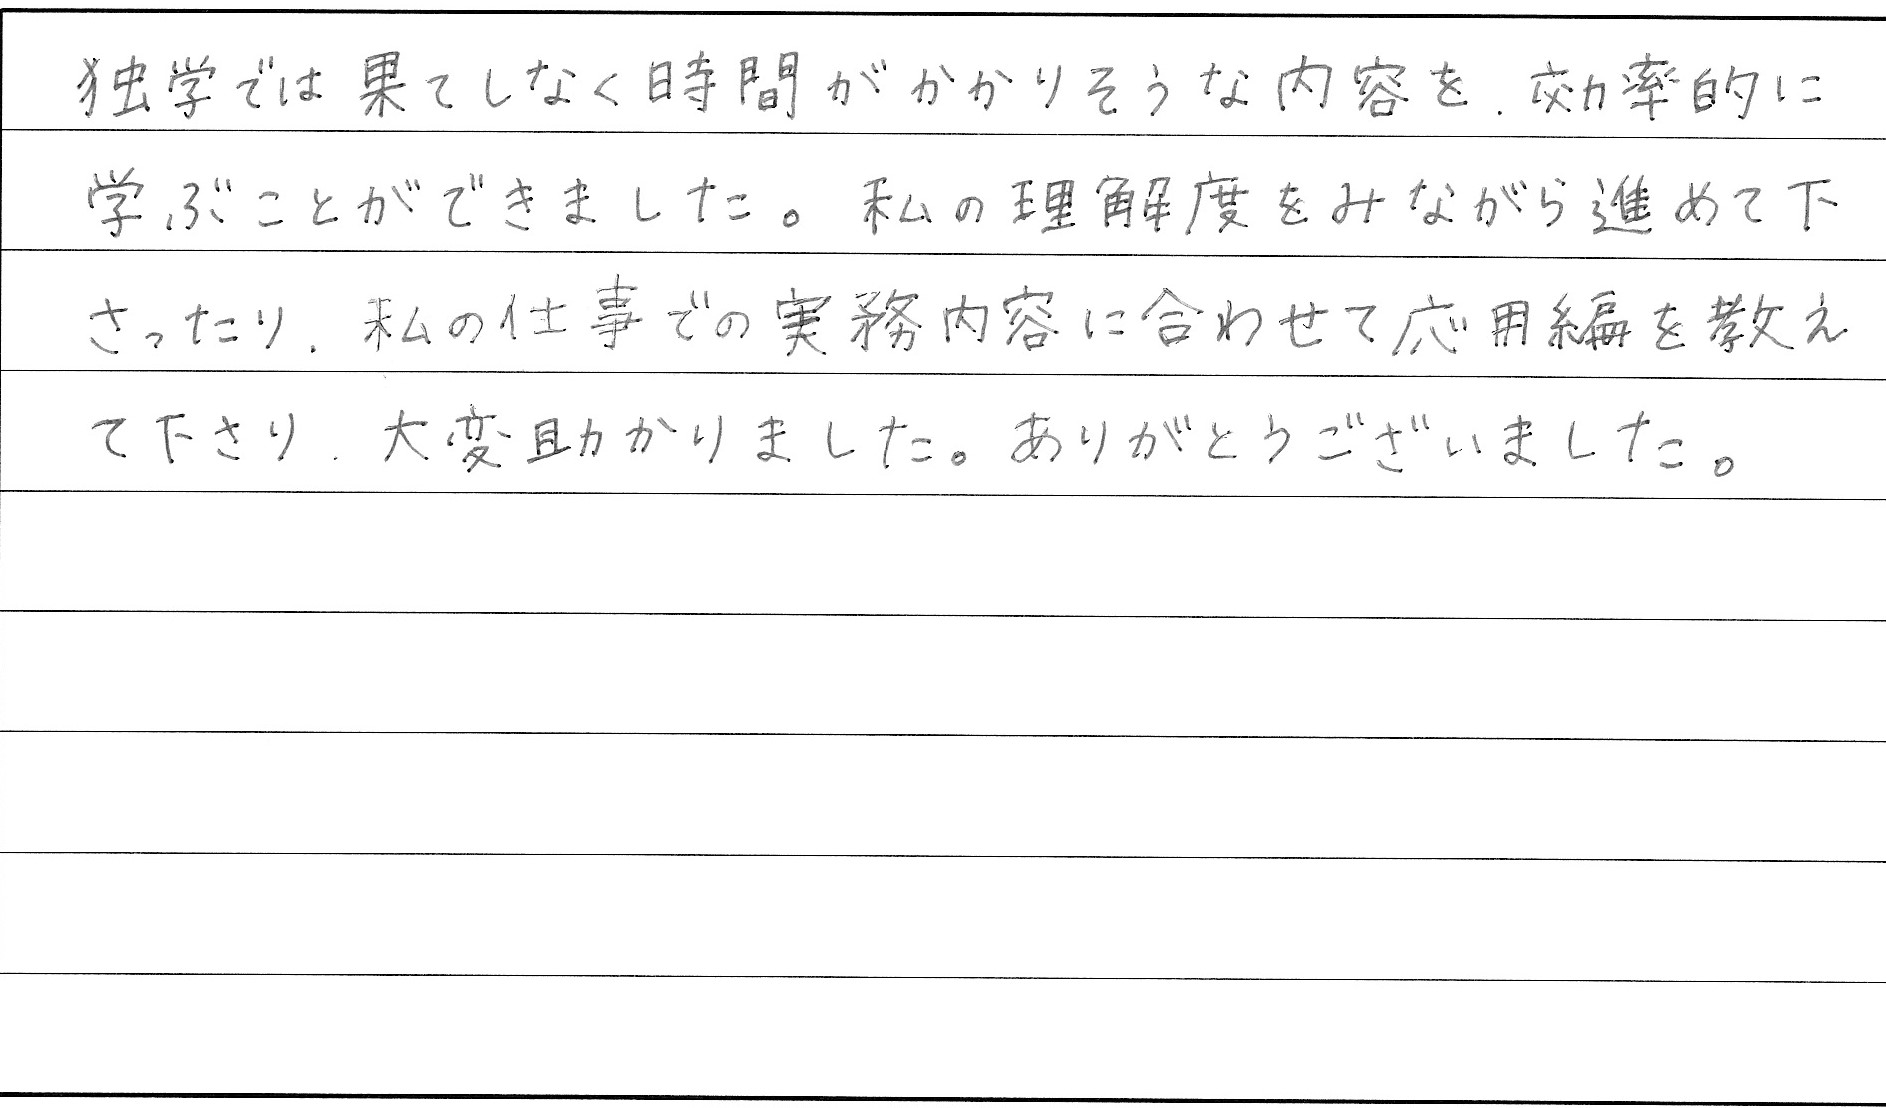 独学では果てしなく時間がかかりそうな内容を、効率的に
学ぶことができました。私の理解度をみながら進めて下
さったり、私の仕事での実務内容に合わせて応用編を教え
て下さり、大変助かりました。ありがとうございました。